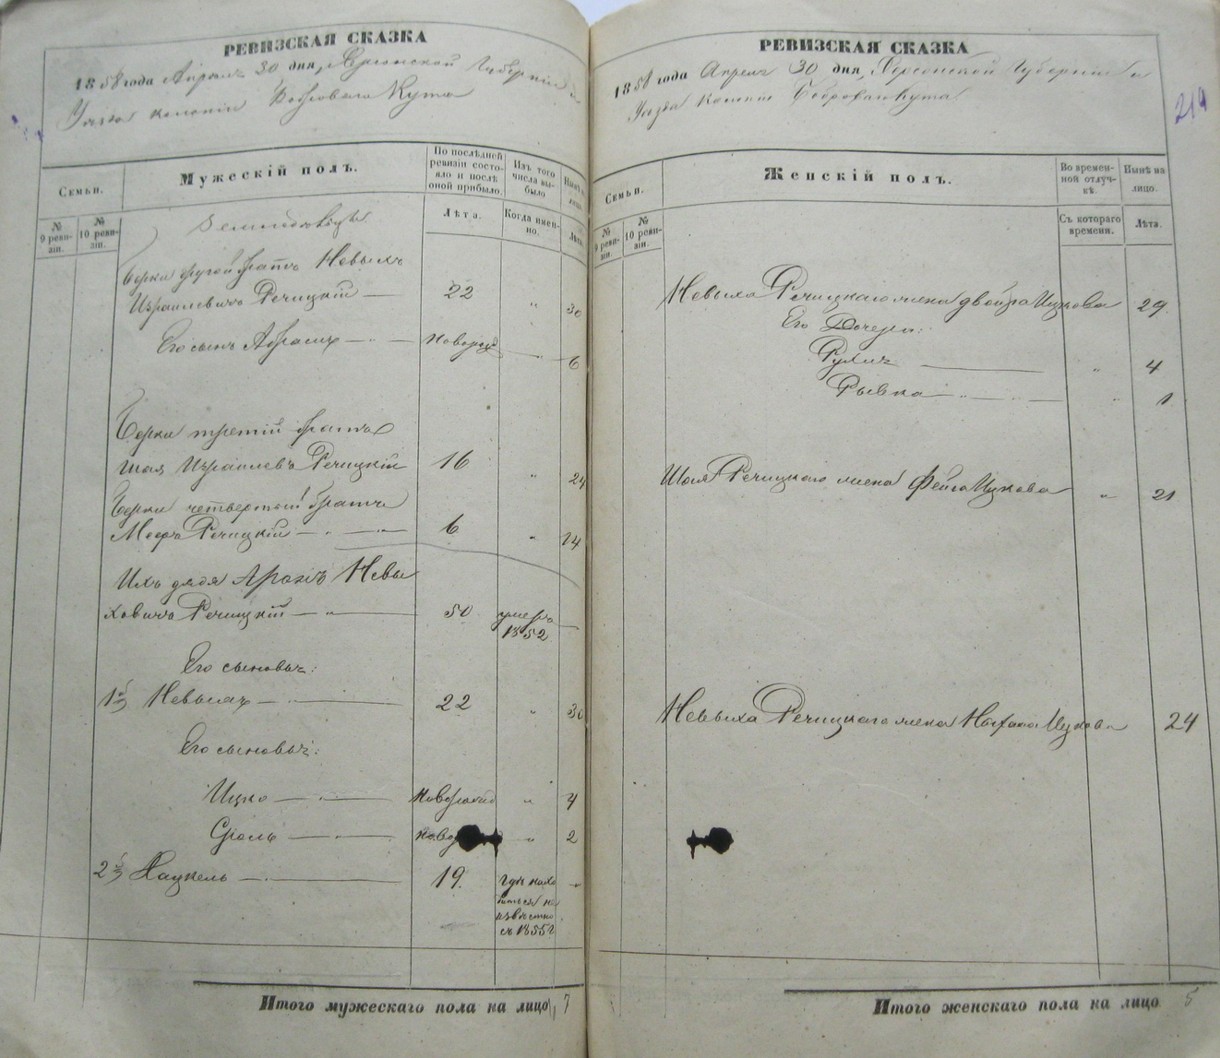 РЕВИЗСКАЯ СКАЗКА
1858 года Апреля 30 дня, Херсонской Губернии и
Уезда колонии Бобровый Кут
Семьи.
Мужескій полъ.
По послѣдней ревизіи состояло и послѣ оной прибыло.
Изъ того числа выбыло
Нынѣ на лицо.
№ 9 ревизіи.
№ 10 ревизіи.
Лѣта.
Когда именно.
Лѣта.
Земледельцы
Берки другой братъ Невыхъ
Израилевичъ Речицкій — 22 " 30
Его сынъ Абрамъ — новорожд — 6
Берки третій братъ
Шая Израилевъ Речицкій 16 " 24
Берки четвертый братъ
Мееръ Речицкій — 6 " 14
Ихъ дядя Невы
ховичъ Речицкій — 50 умеръ 1852 —
Его сыновья:
1й Невыхъ — 22 " 30
Его сыновья:
Ицко — новорожд " 4
Сроль — ново " 2
2й Янкель — 19 где находится неизвестно съ 1855 г "
Итого мужескаго пола на лицо 7
РЕВИЗСКАЯ СКАЗКА
1858 года Апреля 30 дня, Херсонской Губернии и
Уезда колонии Бобровый Кут
214
Семьи.
Женскій полъ.
Во временной отлучкѣ.
Нынѣ на лицо.
№ 9 ревизіи.
№ 10 ревизіи.
Съ котораго времени.
Лѣта.
Невыха Речицкаго жена Двойра Ицкова 29
Его Дочери:
— " 4
Рывка — " 1
Шаи Речицкаго жена Фейга Ицкова " 21
Невыха Речицкаго жена Ицкова 24
Итого женскаго пола на лицо 5